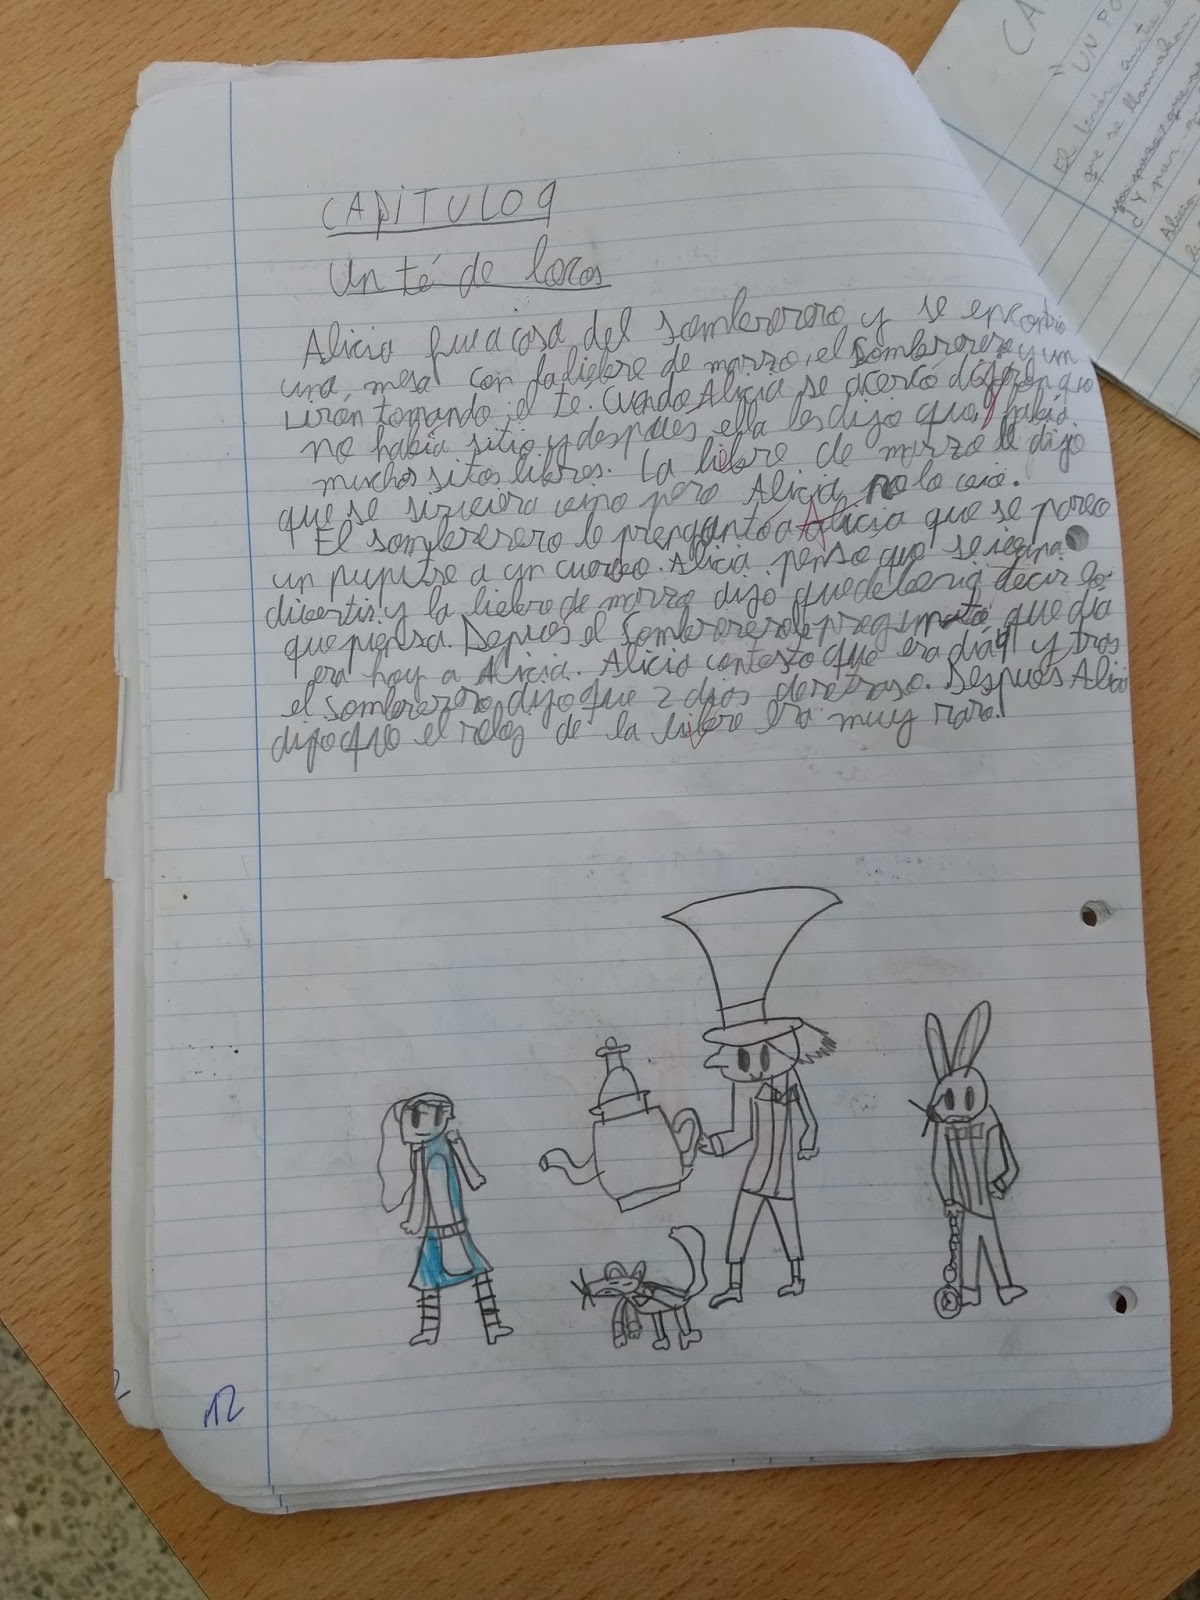 CAPITULO 9
Un té de locos
Alicia fue a casa del sombrerero y se encontró
una mesa con la liebre de marzo, el sombrerero y un
lirón tomando el te. Cuando Alicia se acercó dijeron que
no había sitio y después ella les dijo que había
muchos sitos libres. La liebre de marzo le dijo
que se sirviera vino pero Alicia no lo veia.
El sombrerero le prengunto a Alicia que se parece
un pupitre a un cuervo. Alicia penso que se
divertir y la liebre de marzo dijo que deberia decir lo
que piensa. Depues el sombrerero le pregunto que dia
era hoy a Alicia. Alicia contesto que era diá 4 y tras
el sombrerero dijo que 2 dias de retraso. Despues Alici
dijo que el reloj de la liebre era muy raro.
12
CA
"UN PO
El
que se llamaban
Y
Alicia